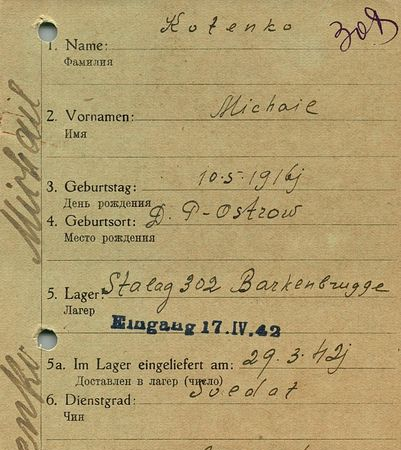 Kotenko
309
1. Name:
Фамилия
2. Vornamen: Michail
Имя
3. Geburtstag: 10.5.1916
День рождения
4. Geburtsort: D. P-Ostrow
Место рождения
5. Lager: Stalag 302 Barkenbrugge
Лагер
Eingang 17.IV.42
5a. Im Lager eingeliefert am: 29.3.42
Доставлен в лагер (число)
6. Dienstgrad: Soldat
Чин
Michail
enko